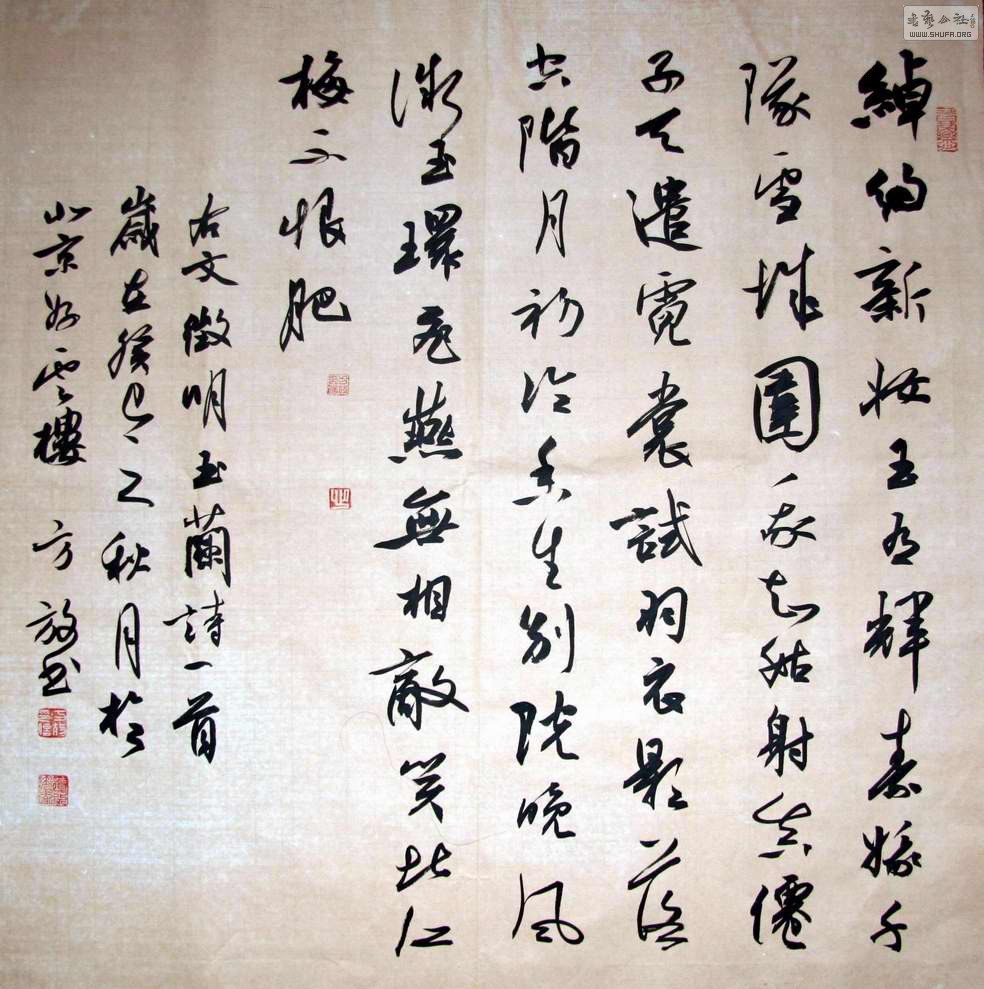 綽約新妝玉有輝素娥千
隊雪城圍我知姑射真僊
子天遣霓裳試羽衣影落
空階月初冷香生別院晚風
微玉環飛燕無相敵笑比江
梅不恨肥
右文徵明玉蘭詩一首
歲在癸巳之秋月於
北京雲樓 方放書
WWW.SHUFA.ORG